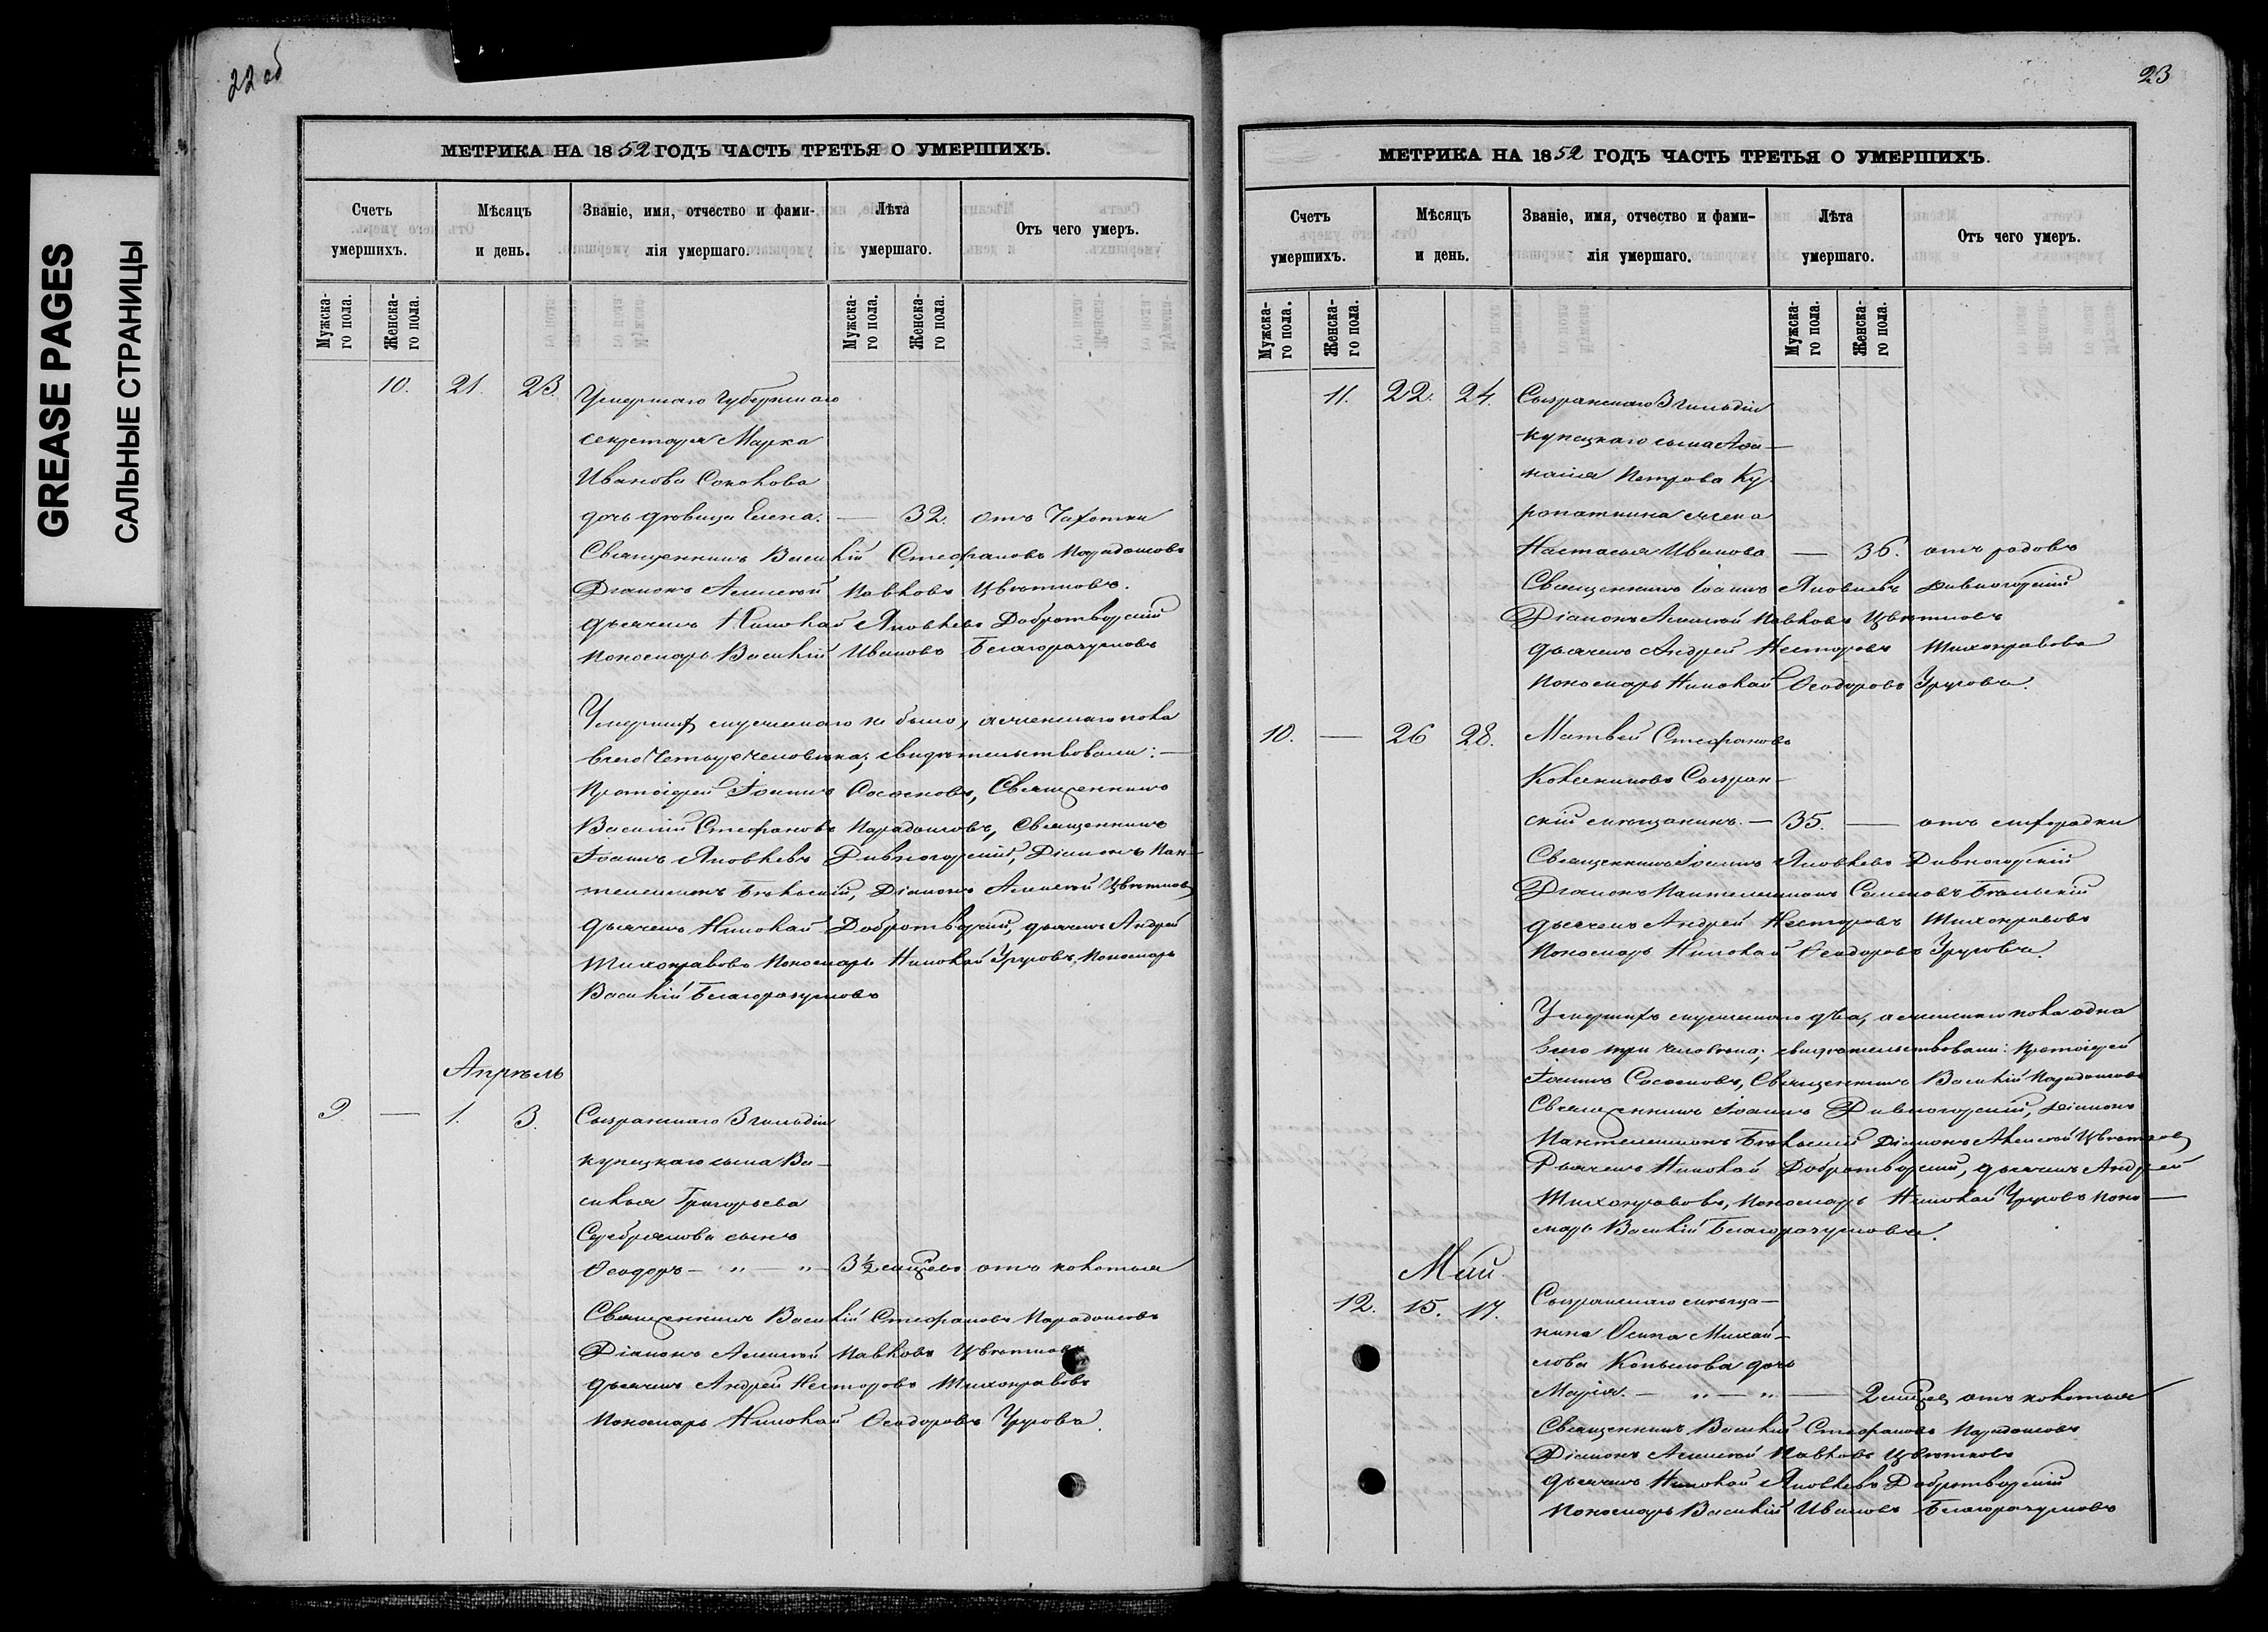 GREASE PAGES
САЛЬНЫЕ СТРАНИЦЫ
22 об
МЕТРИКА НА 1852 ГОДЪ ЧАСТЬ ТРЕТЬЯ О УМЕРШИХЪ.
Счетъ умершихъ.
Мѣсяцъ и день.
Званіе, имя, отчество и фами-
лія умершаго.
Лѣта умершаго.
Отъ чего умеръ.
Мужска-
го пола.
Женска-
го пола.
Мужска-
го пола.
Женска-
го пола.
10. 21. 23. Умершаго Губернскаго
секретаря Марка
Иванова Соколова
дочь девица Елена. — 32. отъ Чахотки
Священникъ Василій Стефановъ Парадоксовъ
Діаконъ Алексѣй Павловъ Цвѣтковъ.
дьячекъ Николай Яковлевъ Добротворскій
пономарь Василій Ивановъ Благоразумовъ
Умершихъ мужескаго не было, а женскаго пола
всего Четыре человѣка; свидѣтельствовали: —
Протоіерей Іоаннъ Сосновъ, Священникъ
Василій Стефановъ Парадоксовъ, Священникъ
Іоаннъ Яковлевъ Дивногорскій, Діаконъ Пан-
телеимонъ Бѣльскій, Діаконъ Алексѣй Цвѣтковъ
дьячекъ Николай Добротворскій, дьячекъ Андрей
Тихонравовъ Пономарь Николай Урусовъ, Пономарь
Василій Благоразумовъ
Апрѣль
9. — 1. 3. Сызранскаго 3 гильдіи
купецкаго сына Ва-
силья Григорьева
Серебрякова сынъ
Ѳеодоръ — " — " — 3½ месяцевъ отъ колотья
Священникъ Василій Стефановъ Парадоксовъ
Діаконъ Алексѣй Павловъ Цвѣтковъ
дьячекъ Андрей Несторовъ Тихонравовъ
Пономарь Николай Ѳеодоровъ Урусовъ.
23
МЕТРИКА НА 1852 ГОДЪ ЧАСТЬ ТРЕТЬЯ О УМЕРШИХЪ.
Счетъ умершихъ.
Мѣсяцъ и день.
Званіе, имя, отчество и фами-
лія умершаго.
Лѣта умершаго.
Отъ чего умеръ.
Мужска-
го пола.
Женска-
го пола.
Мужска-
го пола.
Женска-
го пола.
11. 22. 24. Сызранскаго 3 гильдіи
купецкаго сына Афа-
насія Петрова Ку-
ропаткина жена
Настасья Иванова — 36. отъ родовъ
Священникъ Іоаннъ Яковлевъ Дивногорскій
Діаконъ Алексѣй Павловъ Цвѣтковъ
дьячекъ Андрей Несторовъ Тихонравовъ
Пономарь Николай Ѳеодоровъ Урусовъ.
10. — 26 28. Матвей Стефановъ
Колесниковъ Сызран-
скій мѣщанинъ. — 35. — отъ лихорадки
Священникъ Іоаннъ Яковлевъ Дивногорскій
Діаконъ Пантелеимонъ Семеновъ Бѣльскій
дьячекъ Андрей Несторовъ Тихонравовъ
Пономарь Николай Ѳеодоровъ Урусовъ.
Умершихъ мужескаго два, а женскаго пола одна
всего три человѣка; свидѣтельствовали: Протоіерей
Іоаннъ Сосновъ, Священникъ Василій Парадоксовъ
Священникъ Іоаннъ Дивногорскій, Діаконъ
Пантелеимонъ Бѣльскій Діаконъ Алексѣй Цвѣтковъ
Дьячекъ Николай Добротворскій, дьячекъ Андрей
Тихонравовъ, Пономарь Николай Урусовъ Поно-
марь Василій Благоразумовъ.
Май.
12. 15. 17. Сызранскаго мѣща-
нина Осипа Михай-
лова Копылова дочь
Марія. — " — " — 2 месяц. отъ колотья
Священникъ Василій Стефановъ Парадоксовъ
Діаконъ Алексѣй Павловъ Цвѣтковъ
дьячекъ Николай Яковлевъ Добротворскій
Пономарь Василій Ивановъ Благоразумовъ